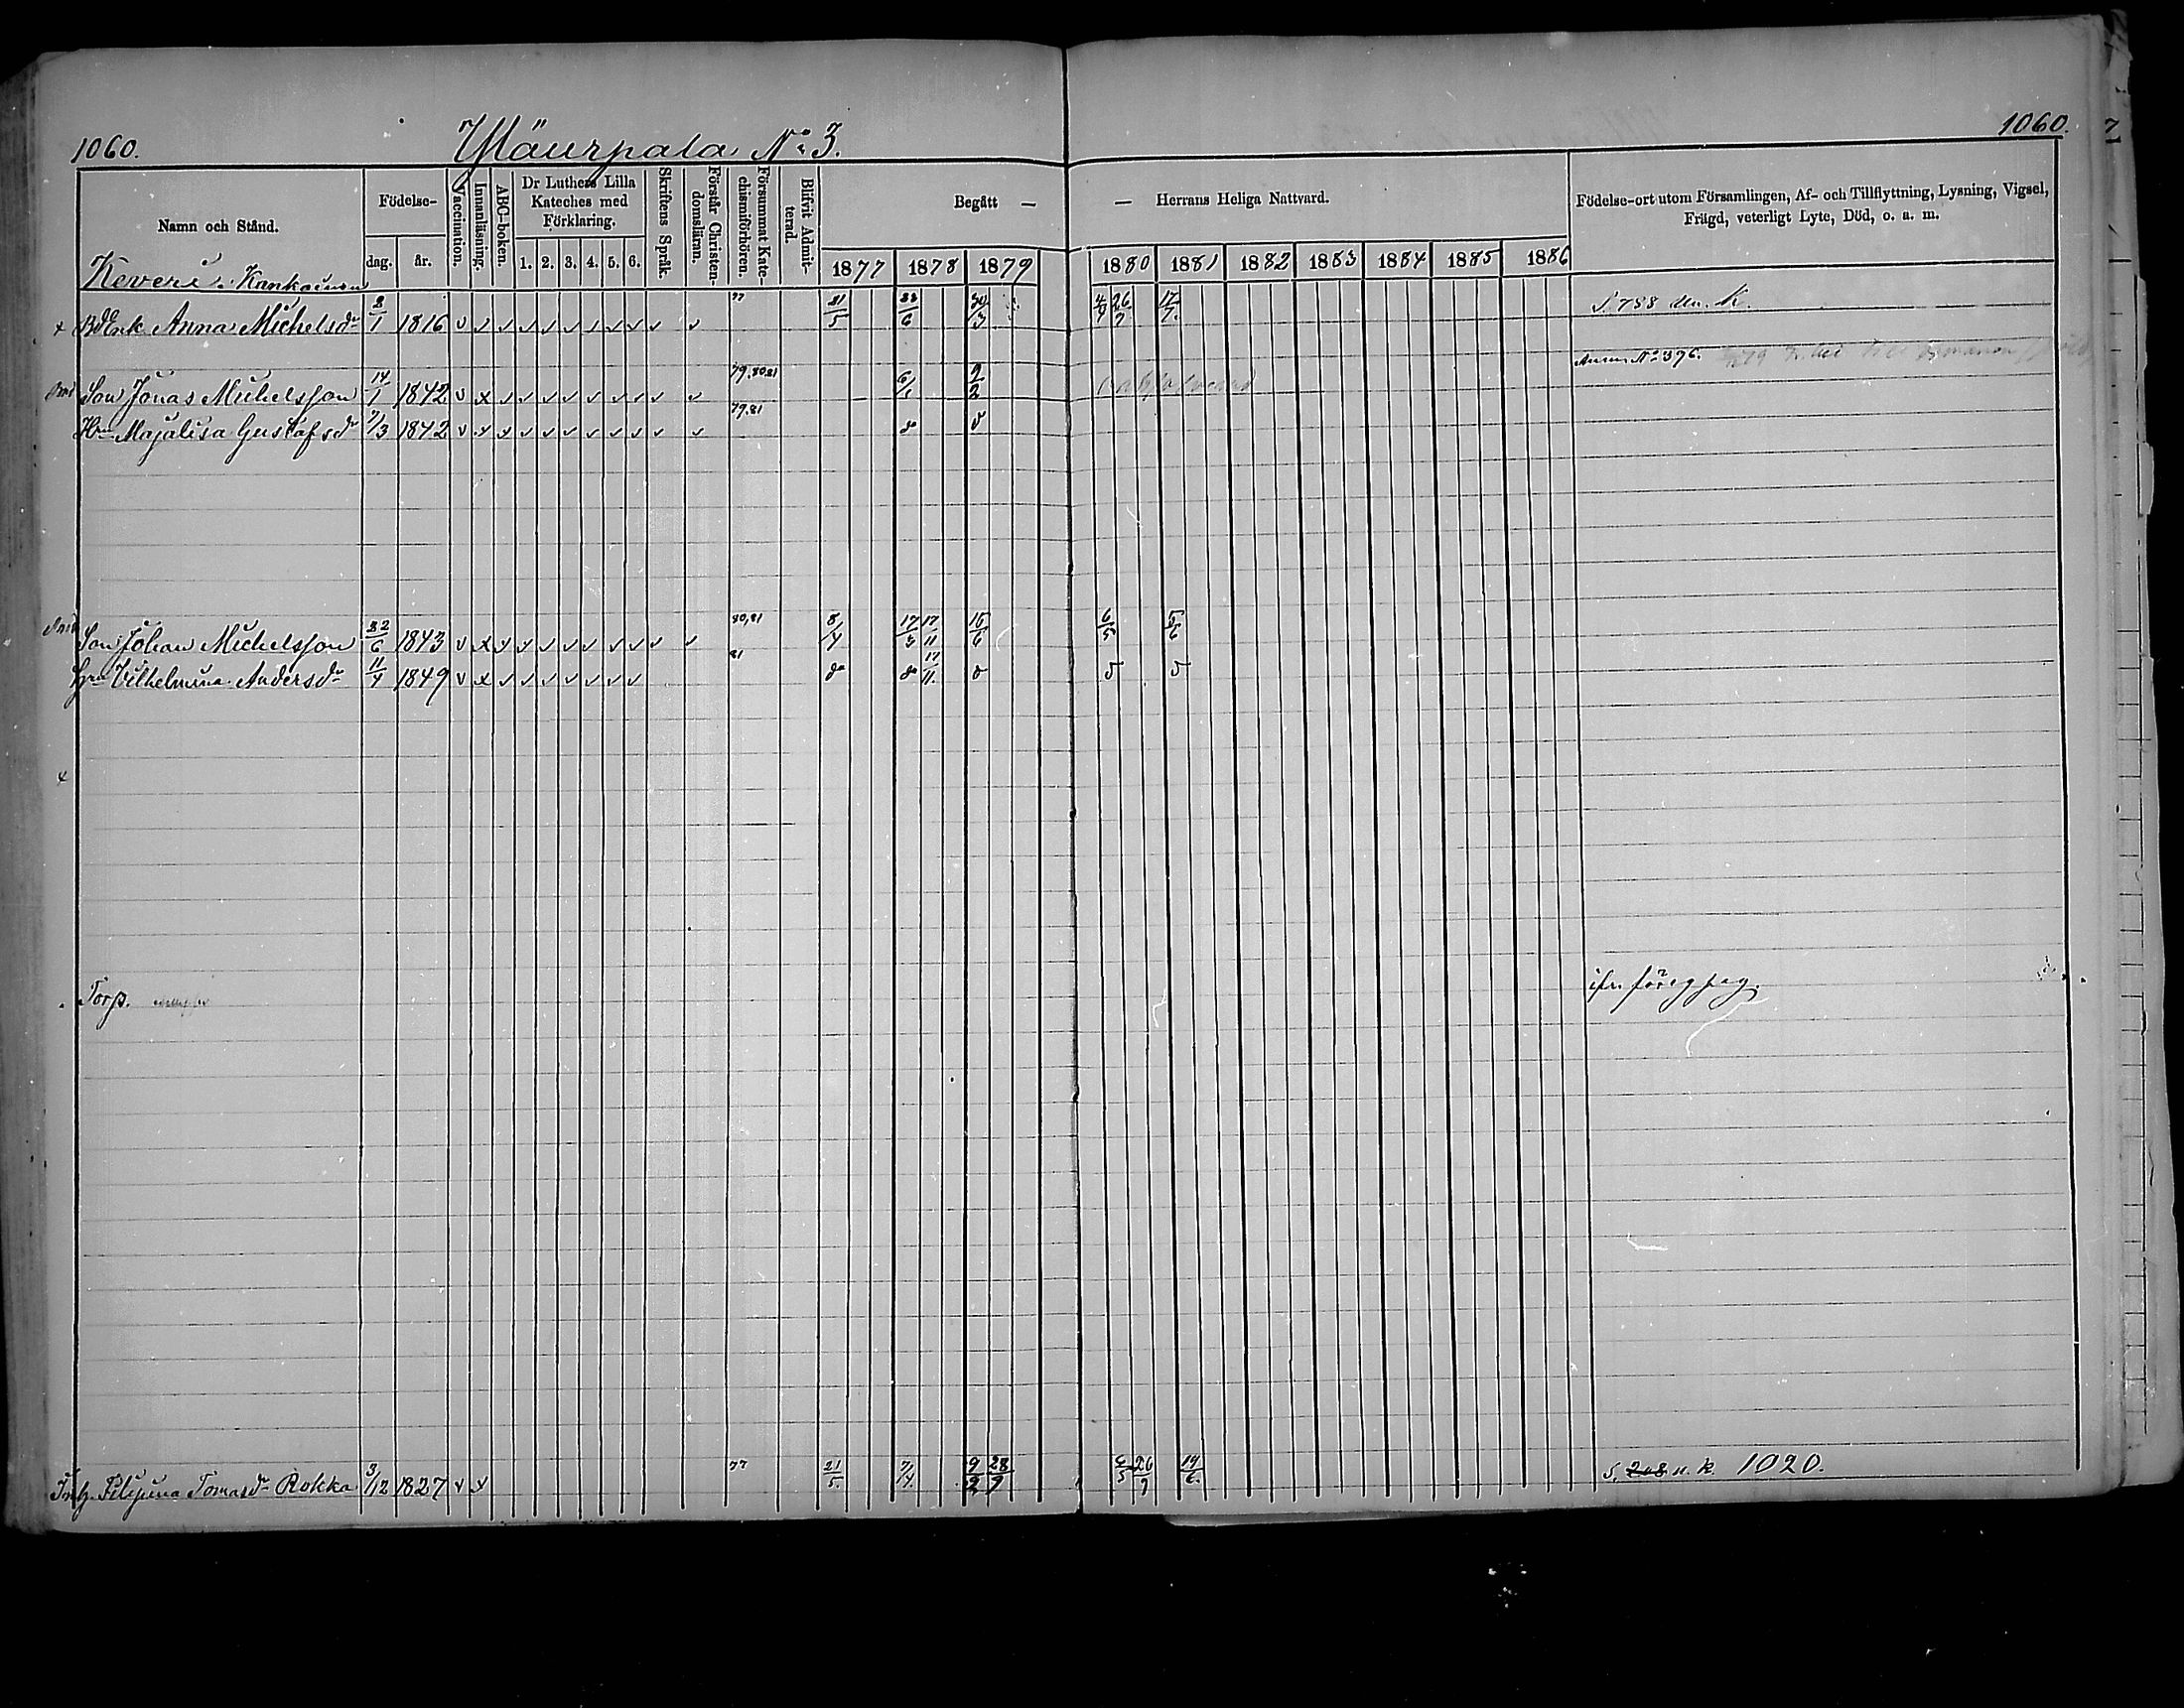 1060.
Yläurpala N:o 3.
1060.
Namn och Stånd.
Födelse-
dag.
år.
Vaccination.
Innanläsning.
ABC-boken.
Dr Luthers Lilla Kateches med Förklaring.
1. 2. 3. 4. 5. 6.
Skriftens Språk.
Förstår Christendomsläran.
Försummat Katechismiförhören.
Blifvit Admitterad.
Begått —
— Herrans Heliga Nattvard.
1877 1878 1879 1880 1881 1882 1883 1884 1885 1886
Födelse-ort utom Församlingen, Af- och Tillflyttning, Lysning, Vigsel,
Frägd, veterligt Lyte, Död, o. a. m.
Keveri
Enk. Anna Michelsdr 8/1 1816 v v v v v v v v v v v 77 31/5 /6 /3 26/ 17/7. S. 758 u. k.
Anm. No 396.
Son Jonas Michelsson 14/1 1842 v x v v v v v v v v v 79.80.81 6/ 9/2
Hru Majalisa Gustafsdr 7/3 1842 v v v v v v v v v v v 79.81
Son Johan Michelsson 22/6 1843 v x v v v v v v v v v 80,81 8/4 17/3 17/11 15/6 6/5 5/6
Hru Vilhelmina Andersdr 11/4 1849 v x v v v v v v v 81 17/11.
Torp. ifr. föreg pag.
Inh. Filipina Tomasdr Rokka 3/12 1827 v x 77 21/5. 7/4. 9/2 28/9 6/5 26/9 19/6. S. 208 u. k. 1020.